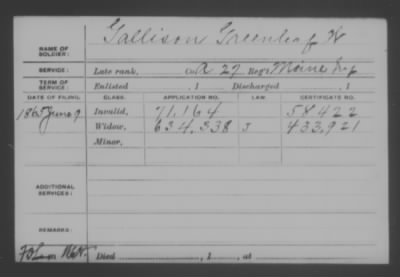 Gallison Greenleaf W
NAME OF SOLDIER:
SERVICE: Late rank, Co. A 27 Reg't Maine Inf
TERM OF SERVICE: Enlisted , 1 Discharged , 1
DATE OF FILING. CLASS. APPLICATION NO. LAW. CERTIFICATE NO.
1865 June 9 Invalid, 71,164 58422
Widow, 634,538 J 433,921
Minor,
ADDITIONAL SERVICES:
REMARKS:
Died , 1 , at